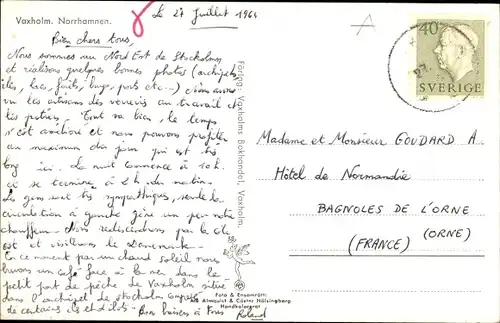 Vaxholm. Norrhamnen.
Le 27 Juillet 1964
Bien chers tous,
Nous sommes au Nord Est de Stockholm
et réalisons quelques bonnes photos (archipels,
îles, lacs, forêts, ports etc...) Nous avons
vu les artisans des verreries au travail et
les potiers. Tout va bien, le temps
s'est amélioré et nous pouvons profiter
au maximum du jour qui est très
long ici. La nuit commence à 10h.
et se termine à 2h du matin.
Les gens sont très sympathiques, seule la
circulation à gauche gêne un peu notre
chauffeur. Nous redescendrons par la côte
est et visiterons le Danemark.
En ce moment par un chaud soleil nous
buvons un café face à la mer dans le
petit port de pêche de Vaxholm situé
dans l'archipel de Stockholm composé
de certains îles et îlots. Bons baisers à Tous
Roland
Förlag: Vaxholms Bokhandel, Vaxholm.
Foto & Ensamrätt:
A/B Almquist & Cöster Hälsingborg
Handkolorerat
40
SVERIGE
Madame et Monsieur GOUDARD A
Hôtel de Normandie
BAGNOLES DE L'ORNE
(ORNE)
(FRANCE)